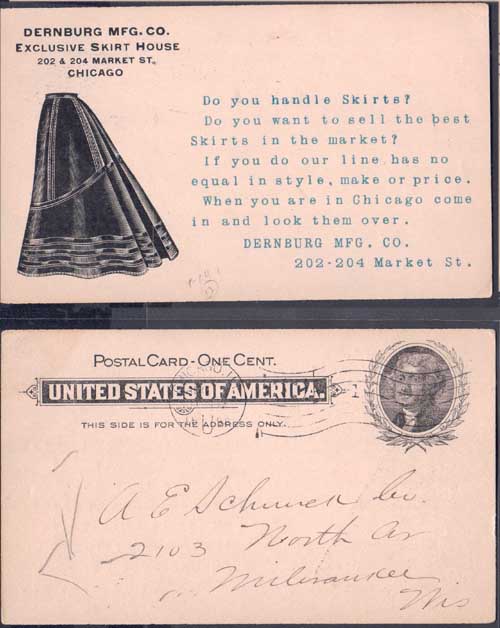 DERNBURG MFG. CO.
EXCLUSIVE SKIRT HOUSE
202 & 204 MARKET ST.
CHICAGO
Do you handle Skirts?
Do you want to sell the best
Skirts in the market?
If you do our line has no
equal in style, make or price.
When you are in Chicago come
in and look them over.
DERNBURG MFG. CO.
202-204 Market St.
POSTAL CARD - ONE CENT.
UNITED STATES OF AMERICA.
THIS SIDE IS FOR THE ADDRESS ONLY.
CHICAGO, ILL
1
A E Schmeck Co.
2103 North Av
Milwaukee
Wis